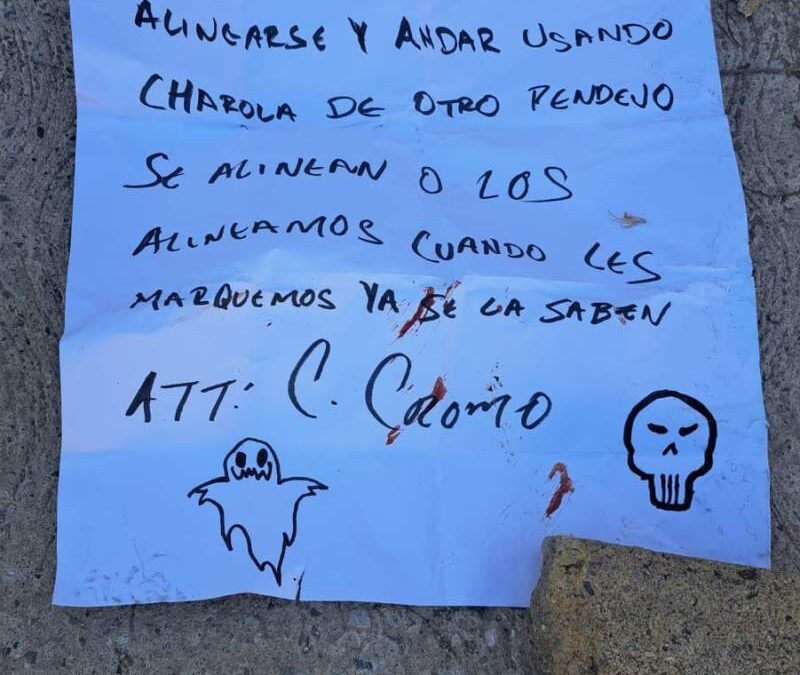 ALINEARSE Y ANDAR USANDO
CHAROLA DE OTRO PENDEJO
SE ALINEAN O LOS
ALINEAMOS CUANDO LES
MARQUEMOS YA SE LA SABEN
ATT: C. CROMO